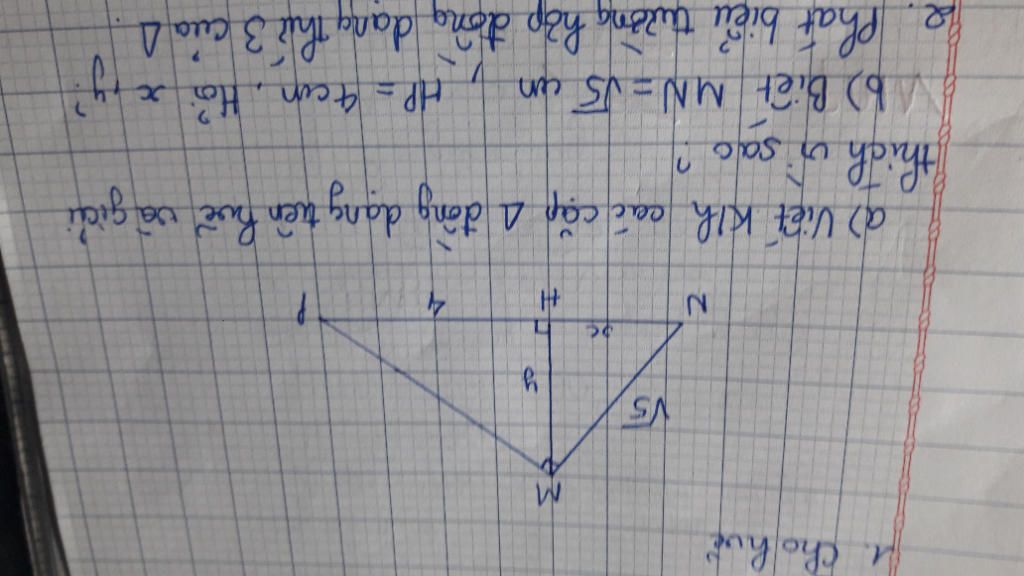 1. Cho hvẽ
M
√5
y
x
4
N
H
P
a) Viết K/h các cặp Δ đồng dạng trên hvẽ và giải
thích vì sao?
b) Biết MN = √5 cm, HP = 4cm. Hỏi x, y?
2. Phát biểu trường hợp đồng dạng thứ 3 của Δ